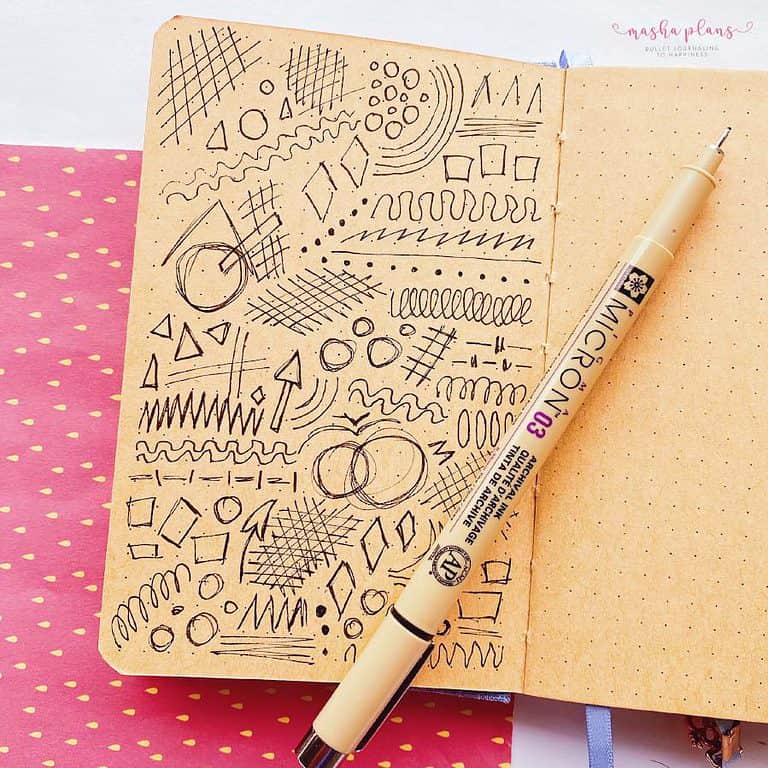 masha plans
BULLET JOURNALING
TO HAPPINESS
MICRON 03
ARCHIVAL INK
QUALITÉ D'ARCHIVAGE
TINTA DE ARCHIVE
AP